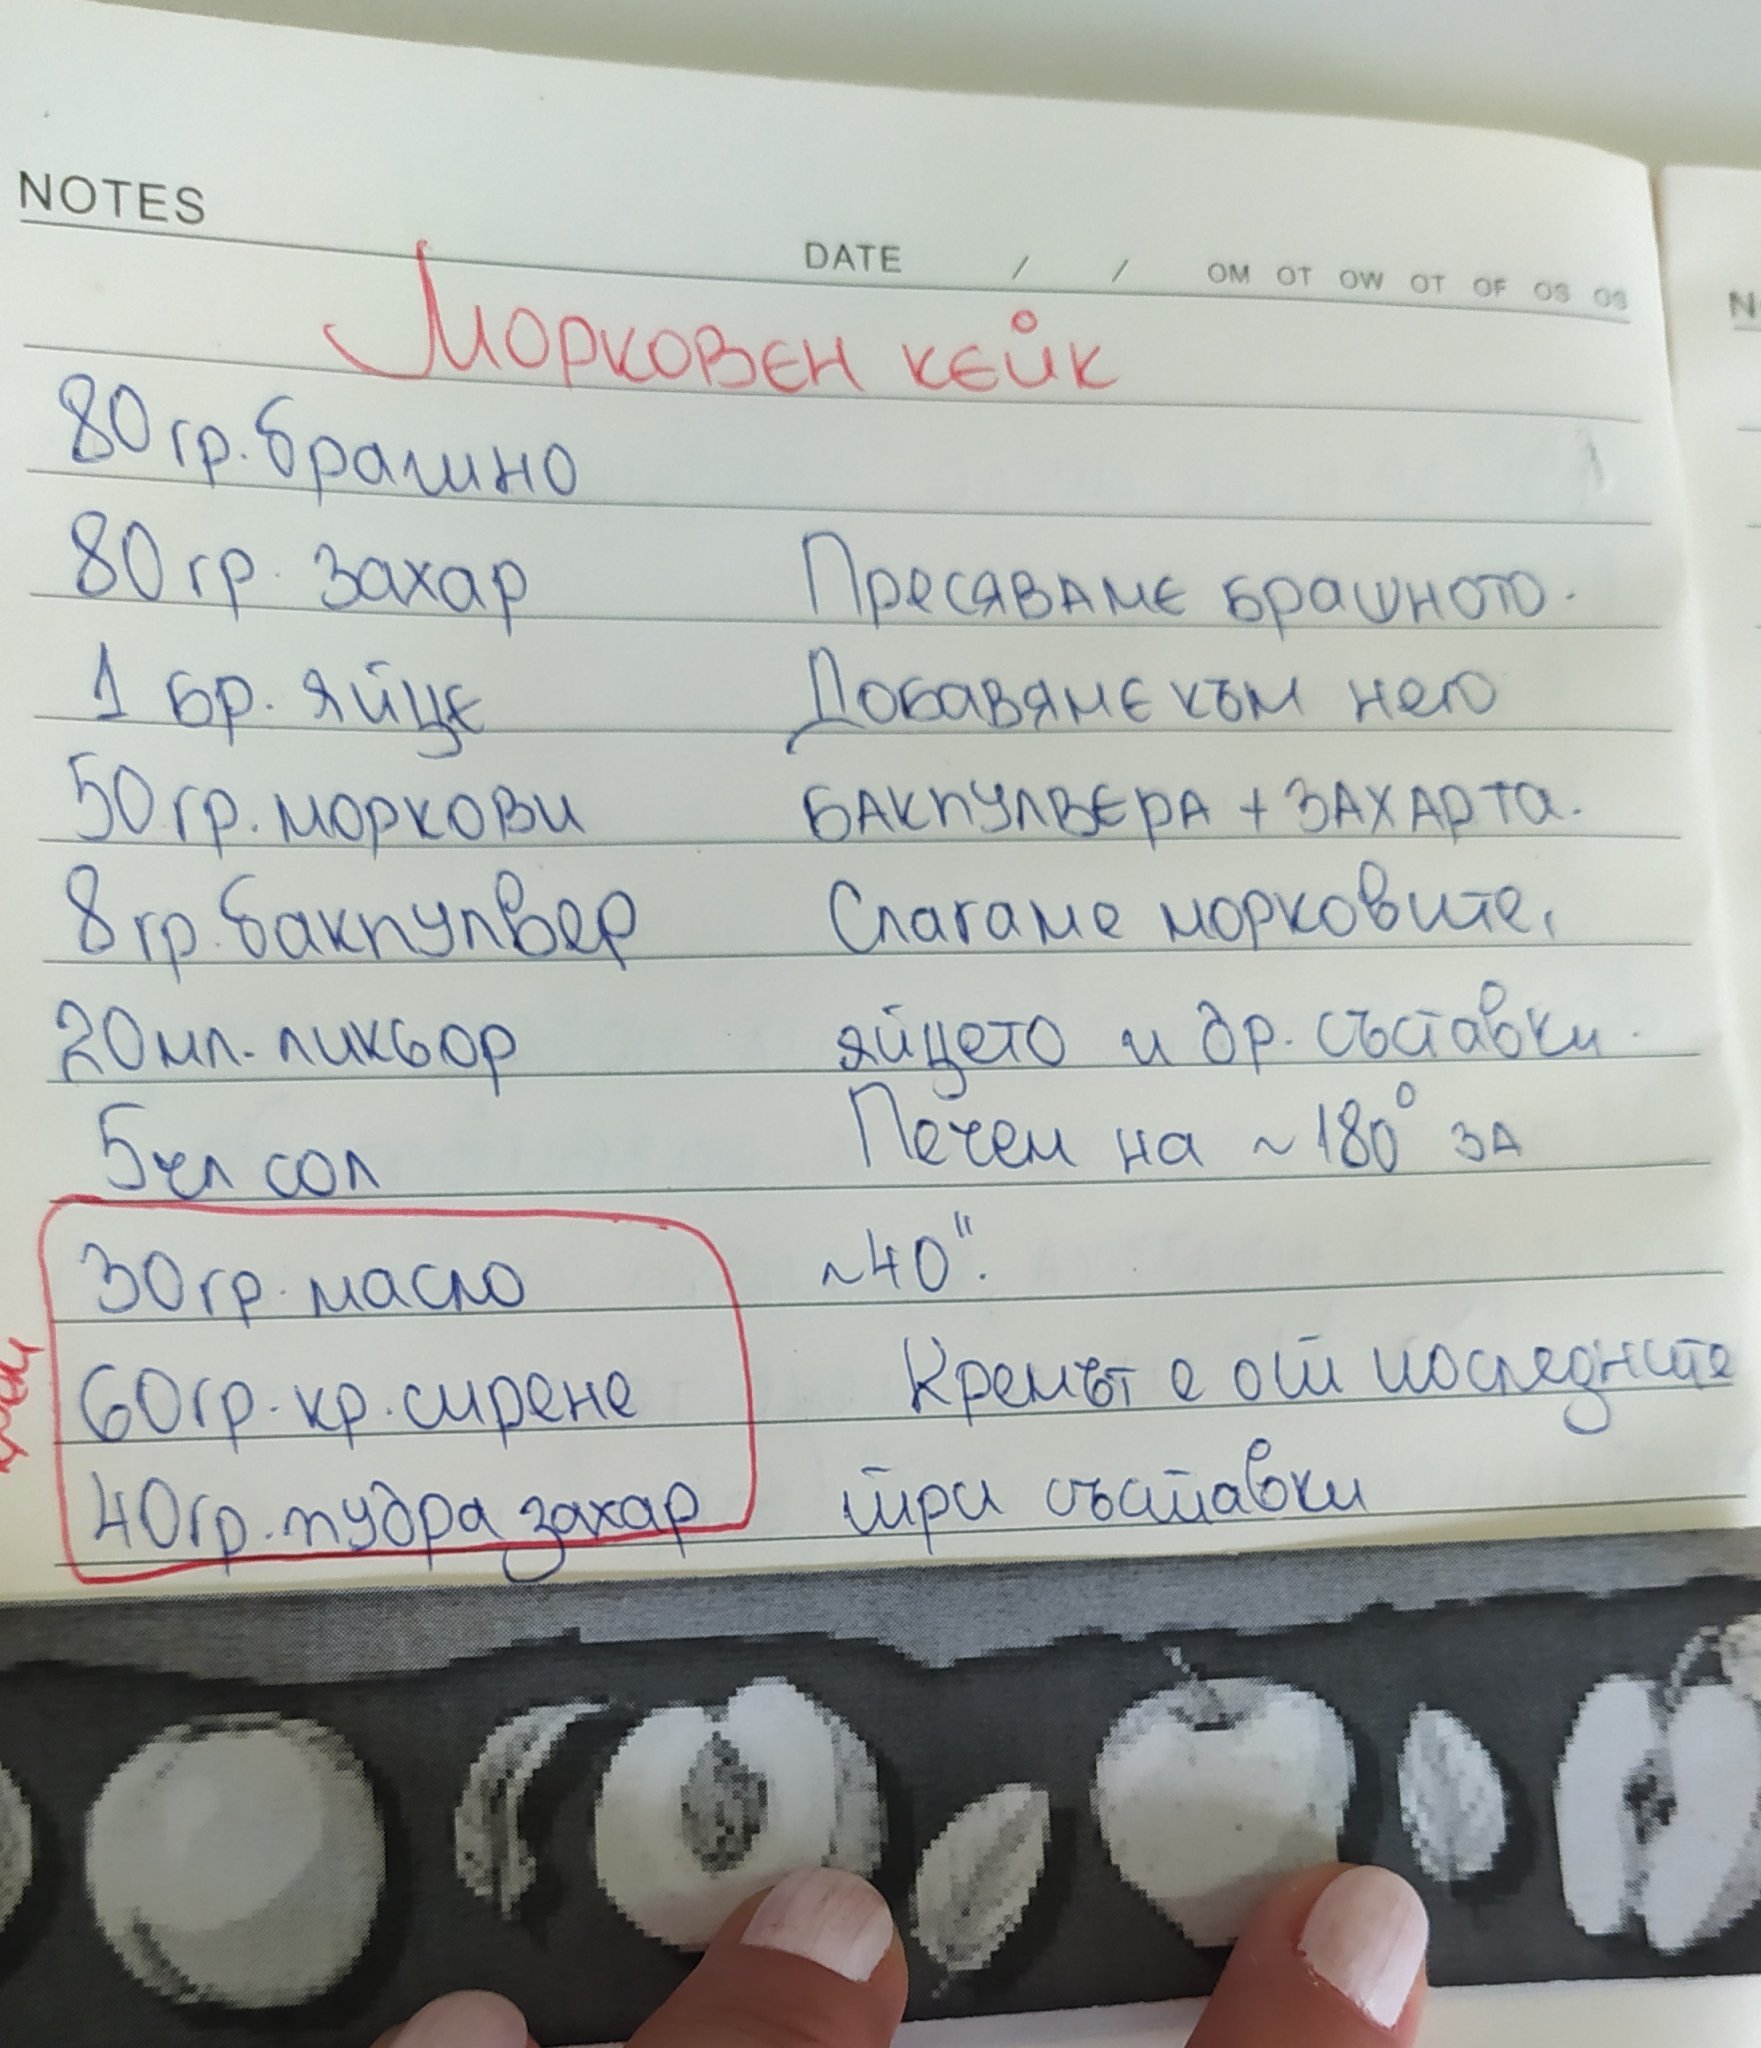 NOTES
DATE / / OM OT OW OT OF OS OS
Морковен кейк
80 гр. брашно
80 гр. захар
1 бр. яйце
50 гр. моркови
8 гр. бакпулвер
20 мл. ликьор
5 чл сол
30 гр. масло
60 гр. кр. сирене
40 гр. пудра захар
крем
Пресяваме брашното.
Добавяме към него
бакпулвера + захарта.
Слагаме морковите,
яйцето и др. съставки.
Печем на ~ 180° за
~ 40".
Кремът е от последните
три съставки
N